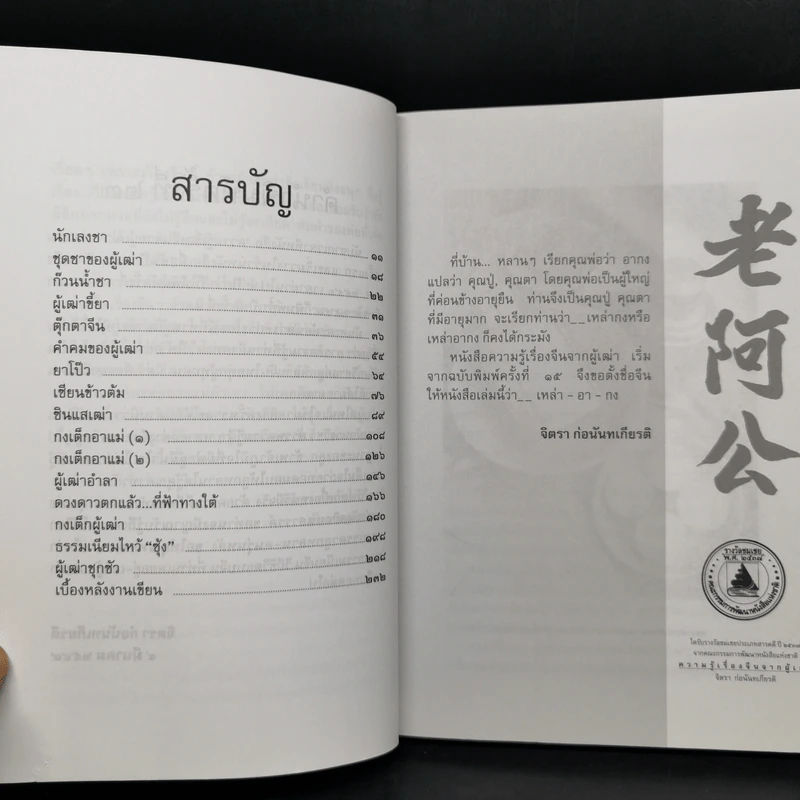 สารบัญ
นักเลงชา ๑๑
ชุดชาของผู้เฒ่า ๑๘
ก๊วนน้ำชา ๒๒
ผู้เฒ่าขี้ยา ๓๑
ตุ๊กตาจีน ๓๖
คำคมของผู้เฒ่า ๕๔
ยาโป๊ว ๖๔
เซียนข้าวต้ม ๗๖
ซินแสเฒ่า ๘๙
กงเต็กอาแม่ (๑) ๑๐๘
กงเต็กอาแม่ (๒) ๑๒๖
ผู้เฒ่าอำลา ๑๔๖
ดวงดาวตกแล้ว...ที่ฟ้าทางใต้ ๑๖๖
กงเต็กผู้เฒ่า ๑๘๐
ธรรมเนียมไหว้ “ซุ้ง” ๑๙๘
ผู้เฒ่าซุกซัว ๒๑๘
เบื้องหลังงานเขียน ๒๓๒
ที่บ้าน... หลานๆ เรียกคุณพ่อว่า อากง
แปลว่า คุณปู่, คุณตา โดยคุณพ่อเป็นผู้ใหญ่
ที่ค่อนข้างอายุยืน ท่านจึงเป็นคุณปู่ คุณตา
ที่มีอายุมาก จะเรียกท่านว่า__เหล่ากงหรือ
เหล่าอากง ก็คงได้กระมัง
หนังสือความรู้เรื่องจีนจากผู้เฒ่า เริ่ม
จากฉบับพิมพ์ครั้งที่ ๑๕ จึงขอตั้งชื่อจีน
ให้หนังสือเล่มนี้ว่า__ เหล่า - อา - กง
จิตรา ก่อนันทเกียรติ
老阿公
รางวัลชมเชย
พ.ศ. ๒๕๓๗
คณะกรรมการพัฒนาหนังสือแห่งชาติ
ได้รับรางวัลชมเชยประเภทสารคดี ปี ๒๕๓๗
จากคณะกรรมการพัฒนาหนังสือแห่งชาติ
ความรู้เรื่องจีนจากผู้เ
จิตรา ก่อนันทเกียรติ